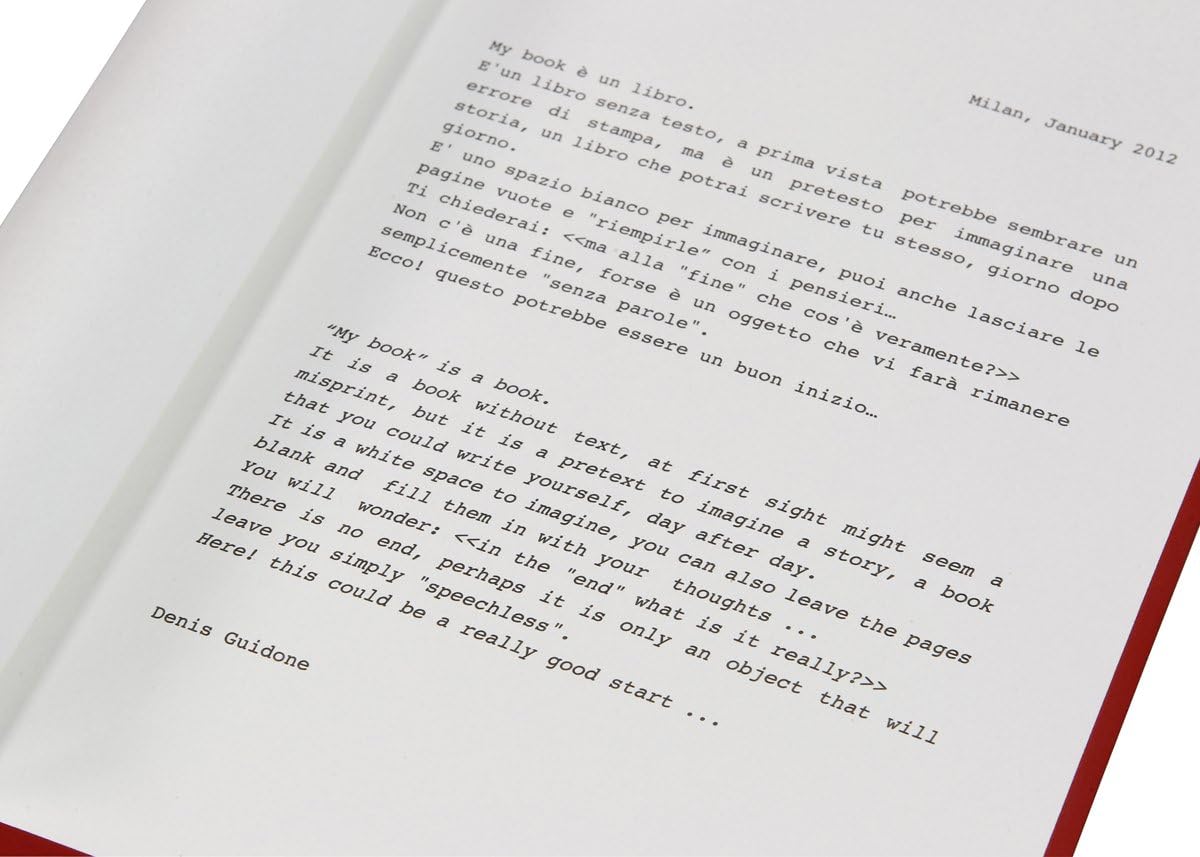 Milan, January 2012
My book è un libro.
E'un libro senza testo, a prima vista potrebbe sembrare un
errore di stampa, ma è un pretesto per immaginare una
storia, un libro che potrai scrivere tu stesso, giorno dopo
giorno.
E' uno spazio bianco per immaginare, puoi anche lasciare le
pagine vuote e "riempirle” con i pensieri…
Ti chiederai: <<ma alla "fine" che cos'è veramente?>>
Non c'è una fine, forse è un oggetto che vi farà rimanere
semplicemente "senza parole".
Ecco! questo potrebbe essere un buon inizio…
“My book” is a book.
It is a book without text, at first sight might seem a
misprint, but it is a pretext to imagine a story, a book
that you could write yourself, day after day.
It is a white space to imagine, you can also leave the pages
blank and fill them in with your thoughts ...
You will wonder: <<in the "end" what is it really?>>
There is no end, perhaps it is only an object that will
leave you simply "speechless".
Here! this could be a really good start ...
Denis Guidone